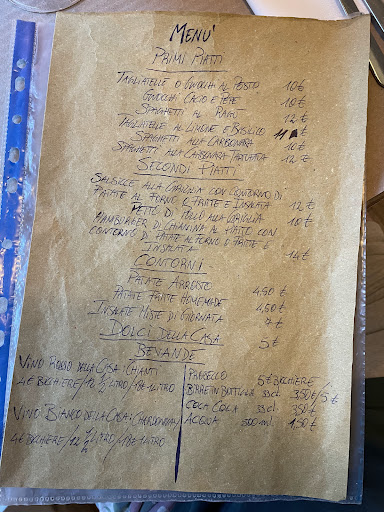 MENU'
PRIMI PIATTI
TAGLIATELLE O GNOCCHI AL PESTO 10€
GNOCCHI CACIO E PEPE 10€
SPAGHETTI AL RAGU 12€
TAGLIATELLE AL LIMONE E BASILICO 11€
SPAGHETTI ALLA CARBONARA 10€
SPAGHETTI ALLA CARBONARA TARTUFATA 12€
SECONDI PIATTI
SALSICCE ALLA GRIGLIA CON CONTORNO DI
PATATE AL FORNO O FRITTE E INSALATA 12€
PETTO DI POLLO ALLA GRIGLIA 10€
HAMBURGER DI CHIANINA AL PIATTO CON
CONTORNO DI PATATE AL FORNO O FRITTE E
INSALATA 14€
CONTORNI
PATATE ARROSTO 4,50€
PATATE FRITTE HOMEMADE 4,50€
INSALATE MISTE DI GIORNATA 7€
DOLCI DELLA CASA 5€
BEVANDE
VINO ROSSO DELLA CASA: CHIANTI
4€ BICCHIERE/12 1/2 LITRO/18€ 1 LITRO
VINO BIANCO DELLA CASA: CHARDONNAY
4€ BICCHIERE/12 1/2 LITRO/18€ 1 LITRO
PROSECCO 5€ BICCHIERE
BIRRE IN BOTTIGLIA 33cl 3,50€/5€
COCA COLA 33cl 3,50€
ACQUA 500ml 1,50€